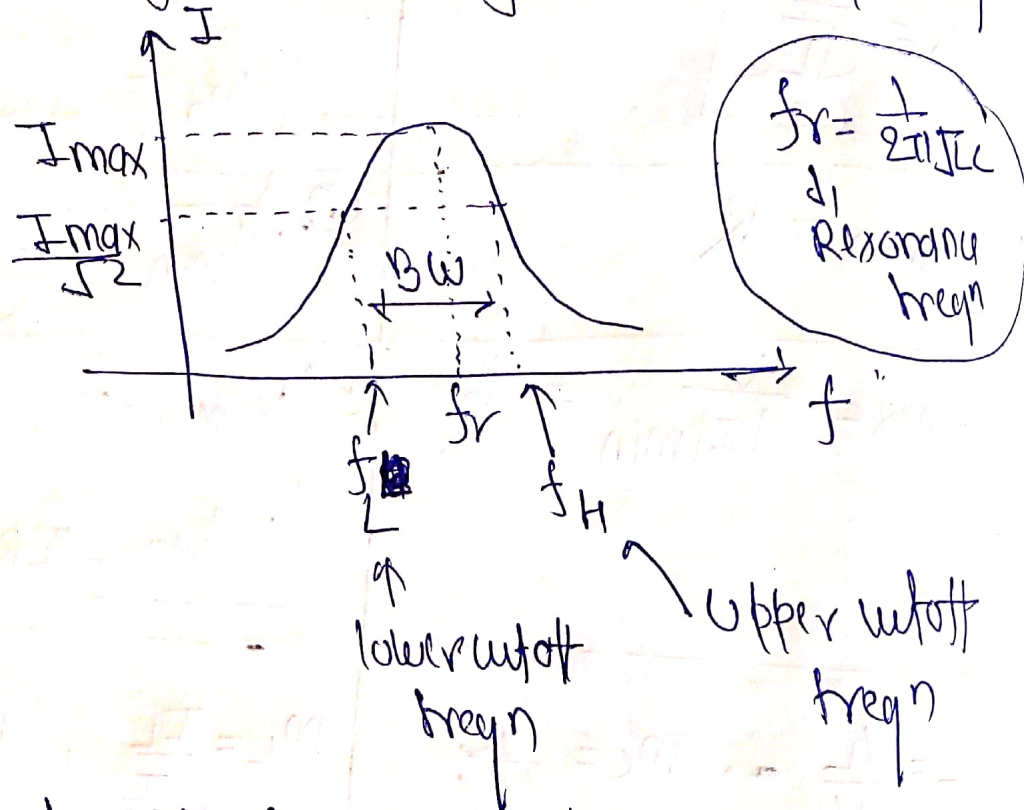 I
Imax
Imax
√2
BW
fr = 1
2π√LC
↓
Resonance
freqn
f
fr
fL
fH
lower cutoff
freqn
Upper cutoff
freqn